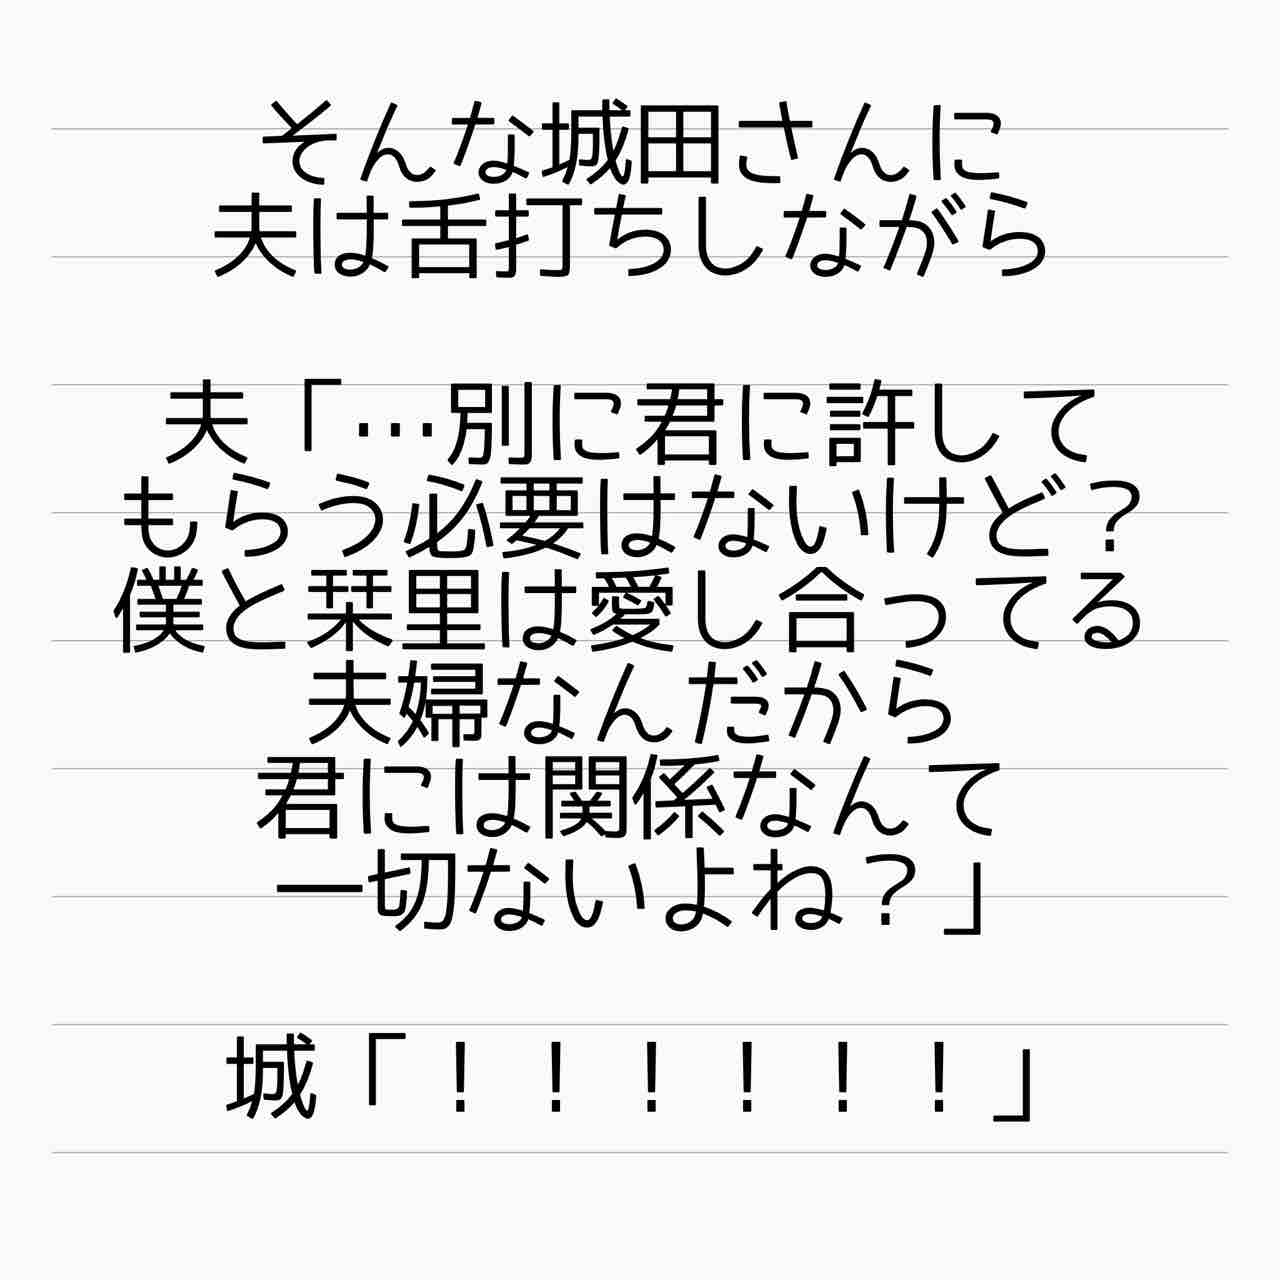 そんな城田さんに
夫は舌打ちしながら
夫「…別に君に許して
もらう必要はないけど？
僕と栞里は愛し合ってる
夫婦なんだから
君には関係なんて
一切ないよね？」
城「！！！！！！」